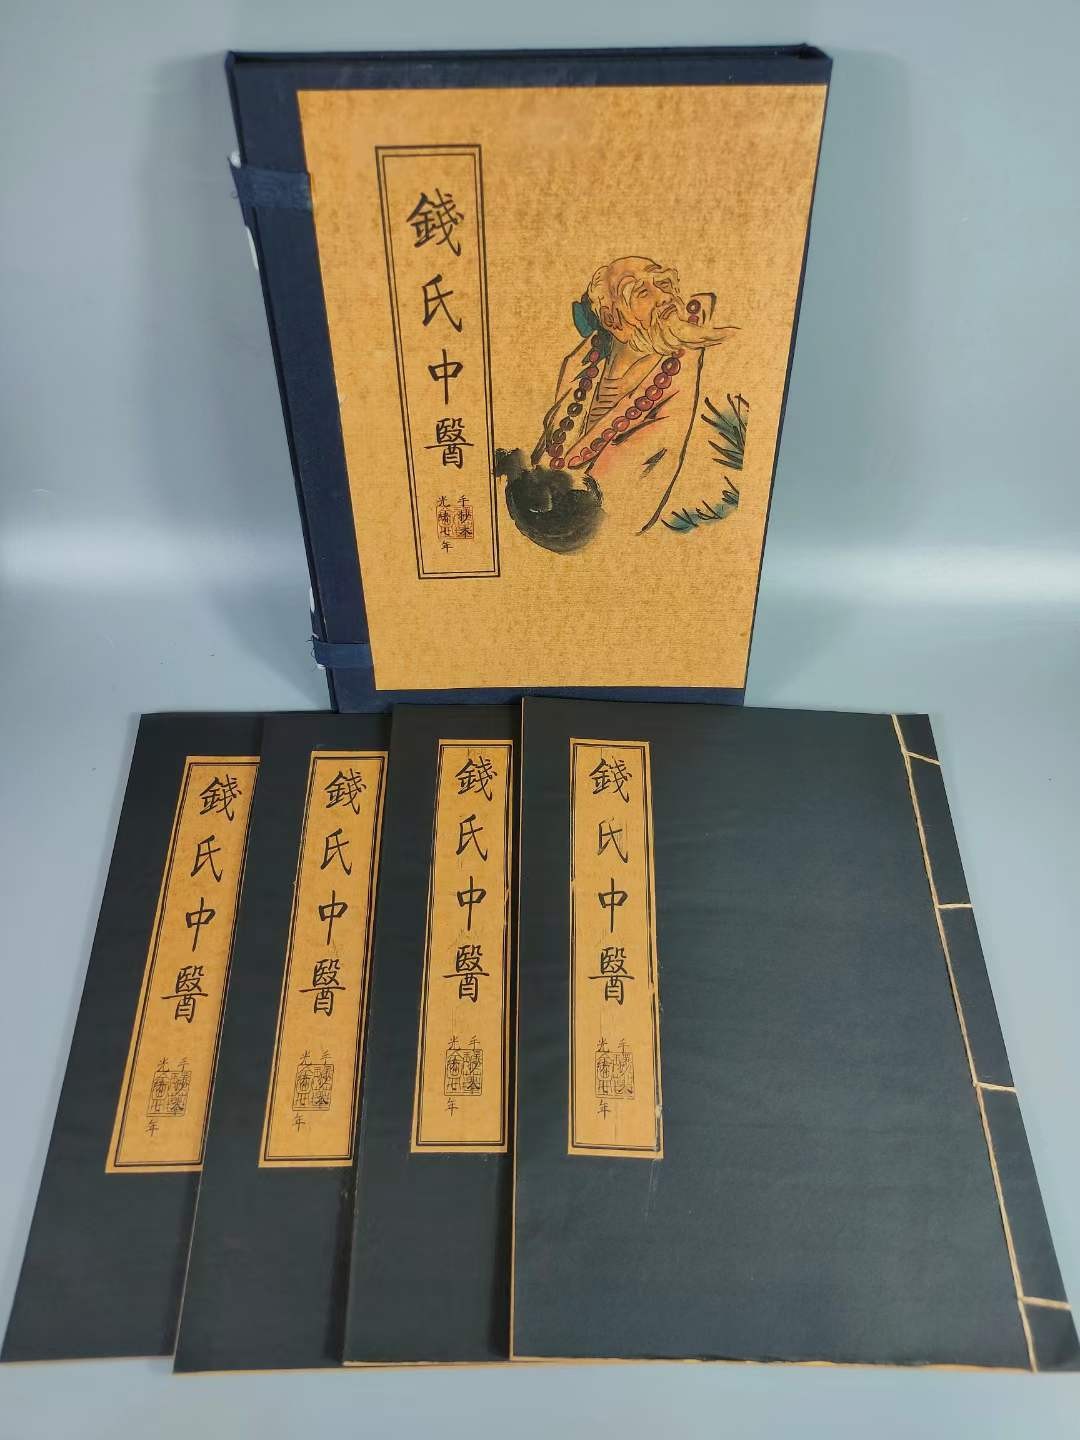 錢氏中醫
手抄本
光緒七年
錢氏中醫
手抄本
光緒七年
錢氏中醫
手抄本
光緒七年
錢氏中醫
手抄本
光緒七年
錢氏中醫
手抄本
光緒七年